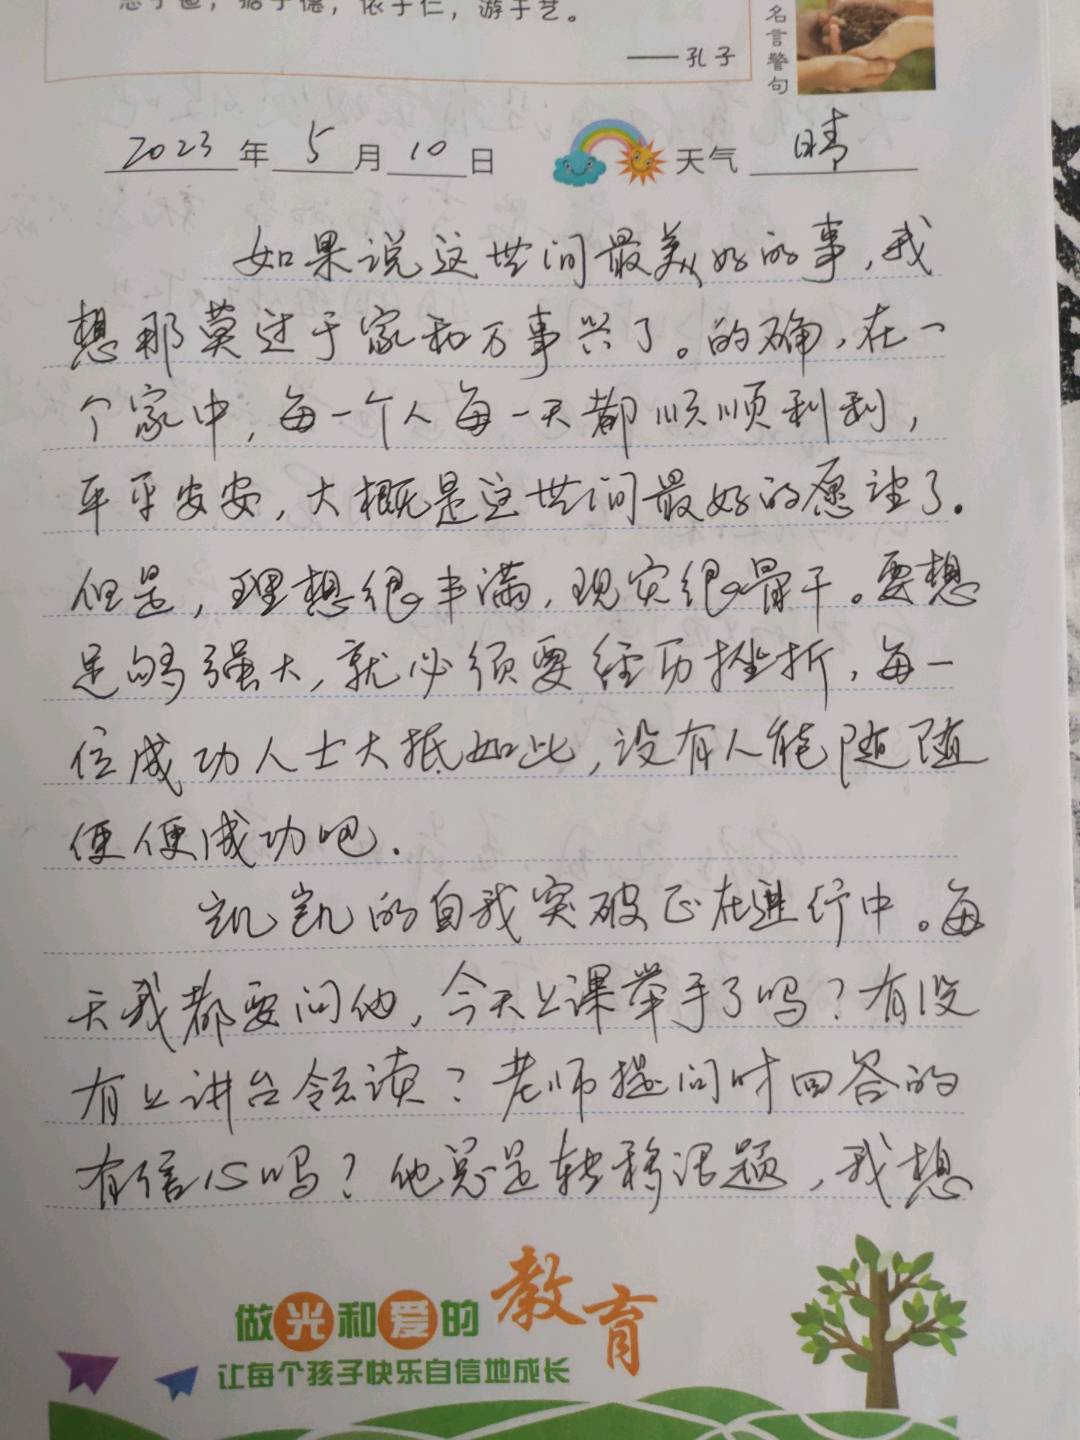 志于道，据于德，依于仁，游于艺。
——孔子
名言警句
2023年5月10日 天气 晴
如果说这世间最美好的事，我
想那莫过于家和万事兴了。的确，在一
个家中，每一个人每一天都顺顺利利，
平平安安，大概是这世间最好的愿望了.
但是，理想很丰满，现实很骨干。要想
足够强大，就必须要经历挫折，每一
位成功人士大抵如此，没有人能随随
便便成功吧.
凯凯的自我突破正在进行中。每
天我都要问他，今天上课举手了吗？有没
有上讲台领读？老师提问时回答的
有信心吗？他总是转移话题，我想
做光和爱的教育
让每个孩子快乐自信地成长